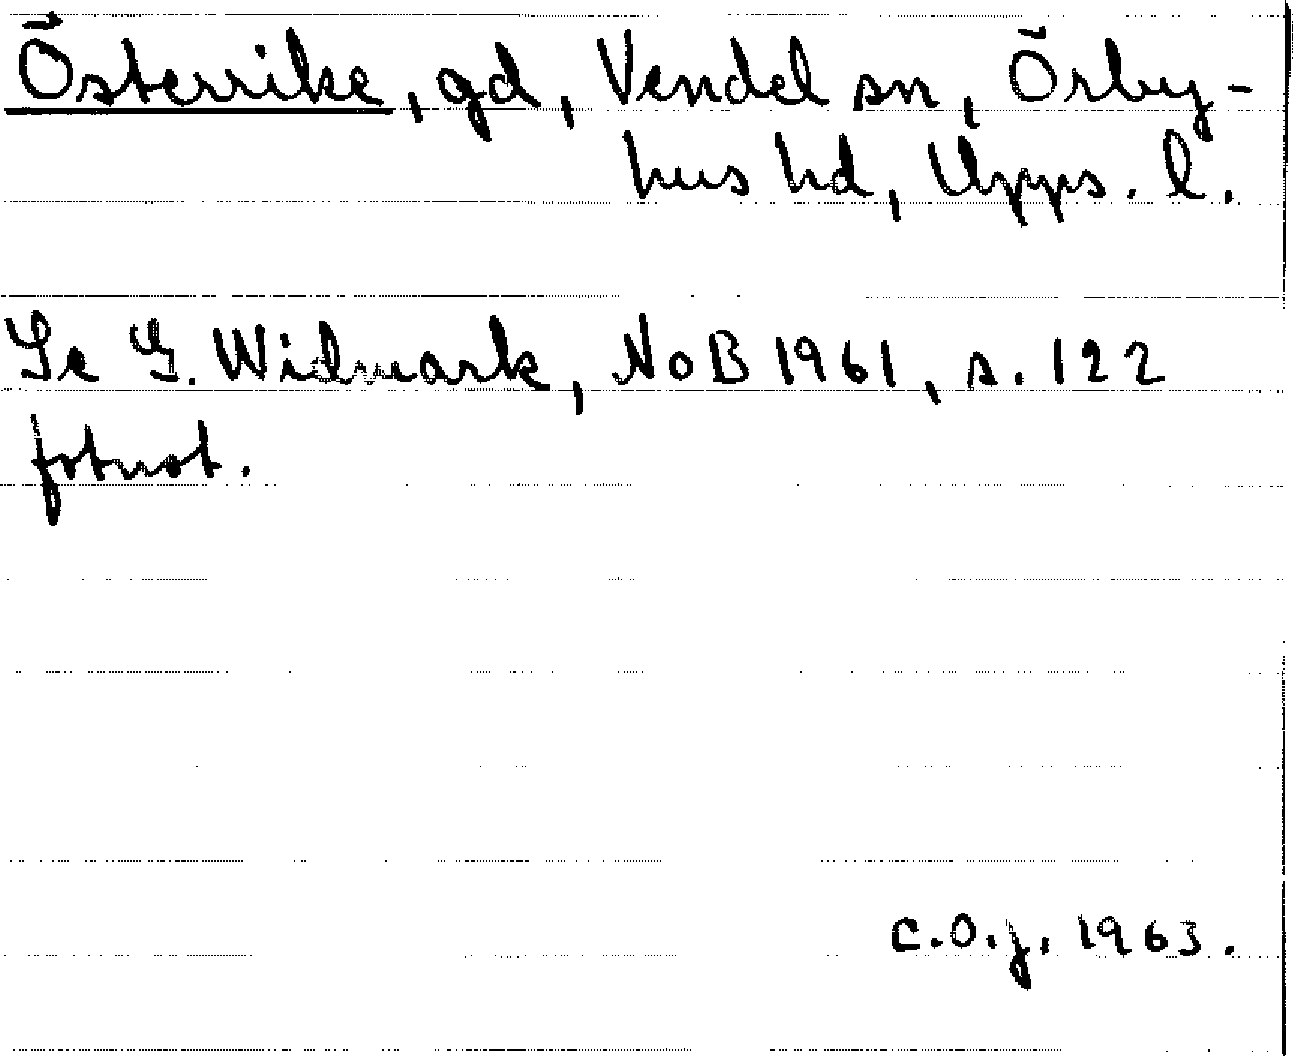 Österrike, gd, Vendel sn, Örby-
hus hd, Upps. l.
Se G. Widmark, NoB 1961, s. 122
fotnot.
C.O.j. 1963.